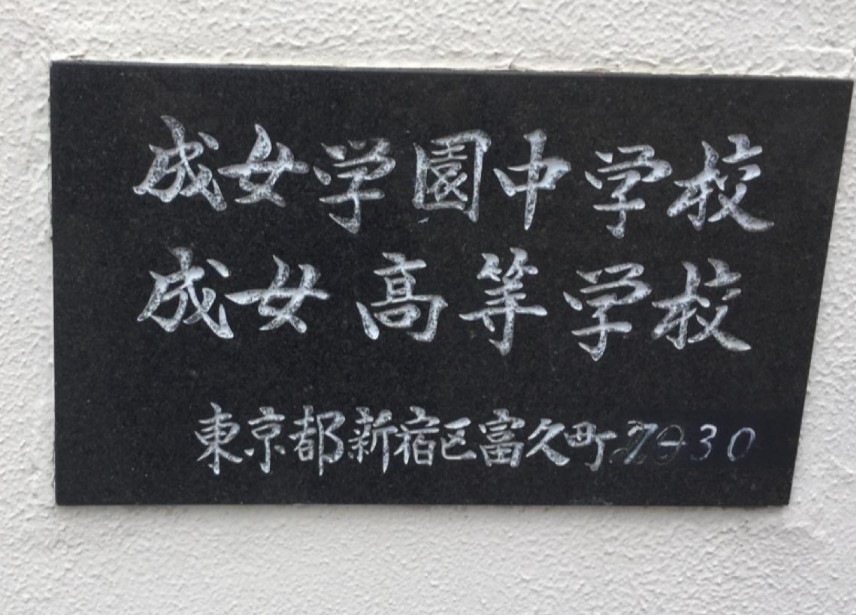 成女学園中学校
成女高等学校
東京都新宿区富久町7-30